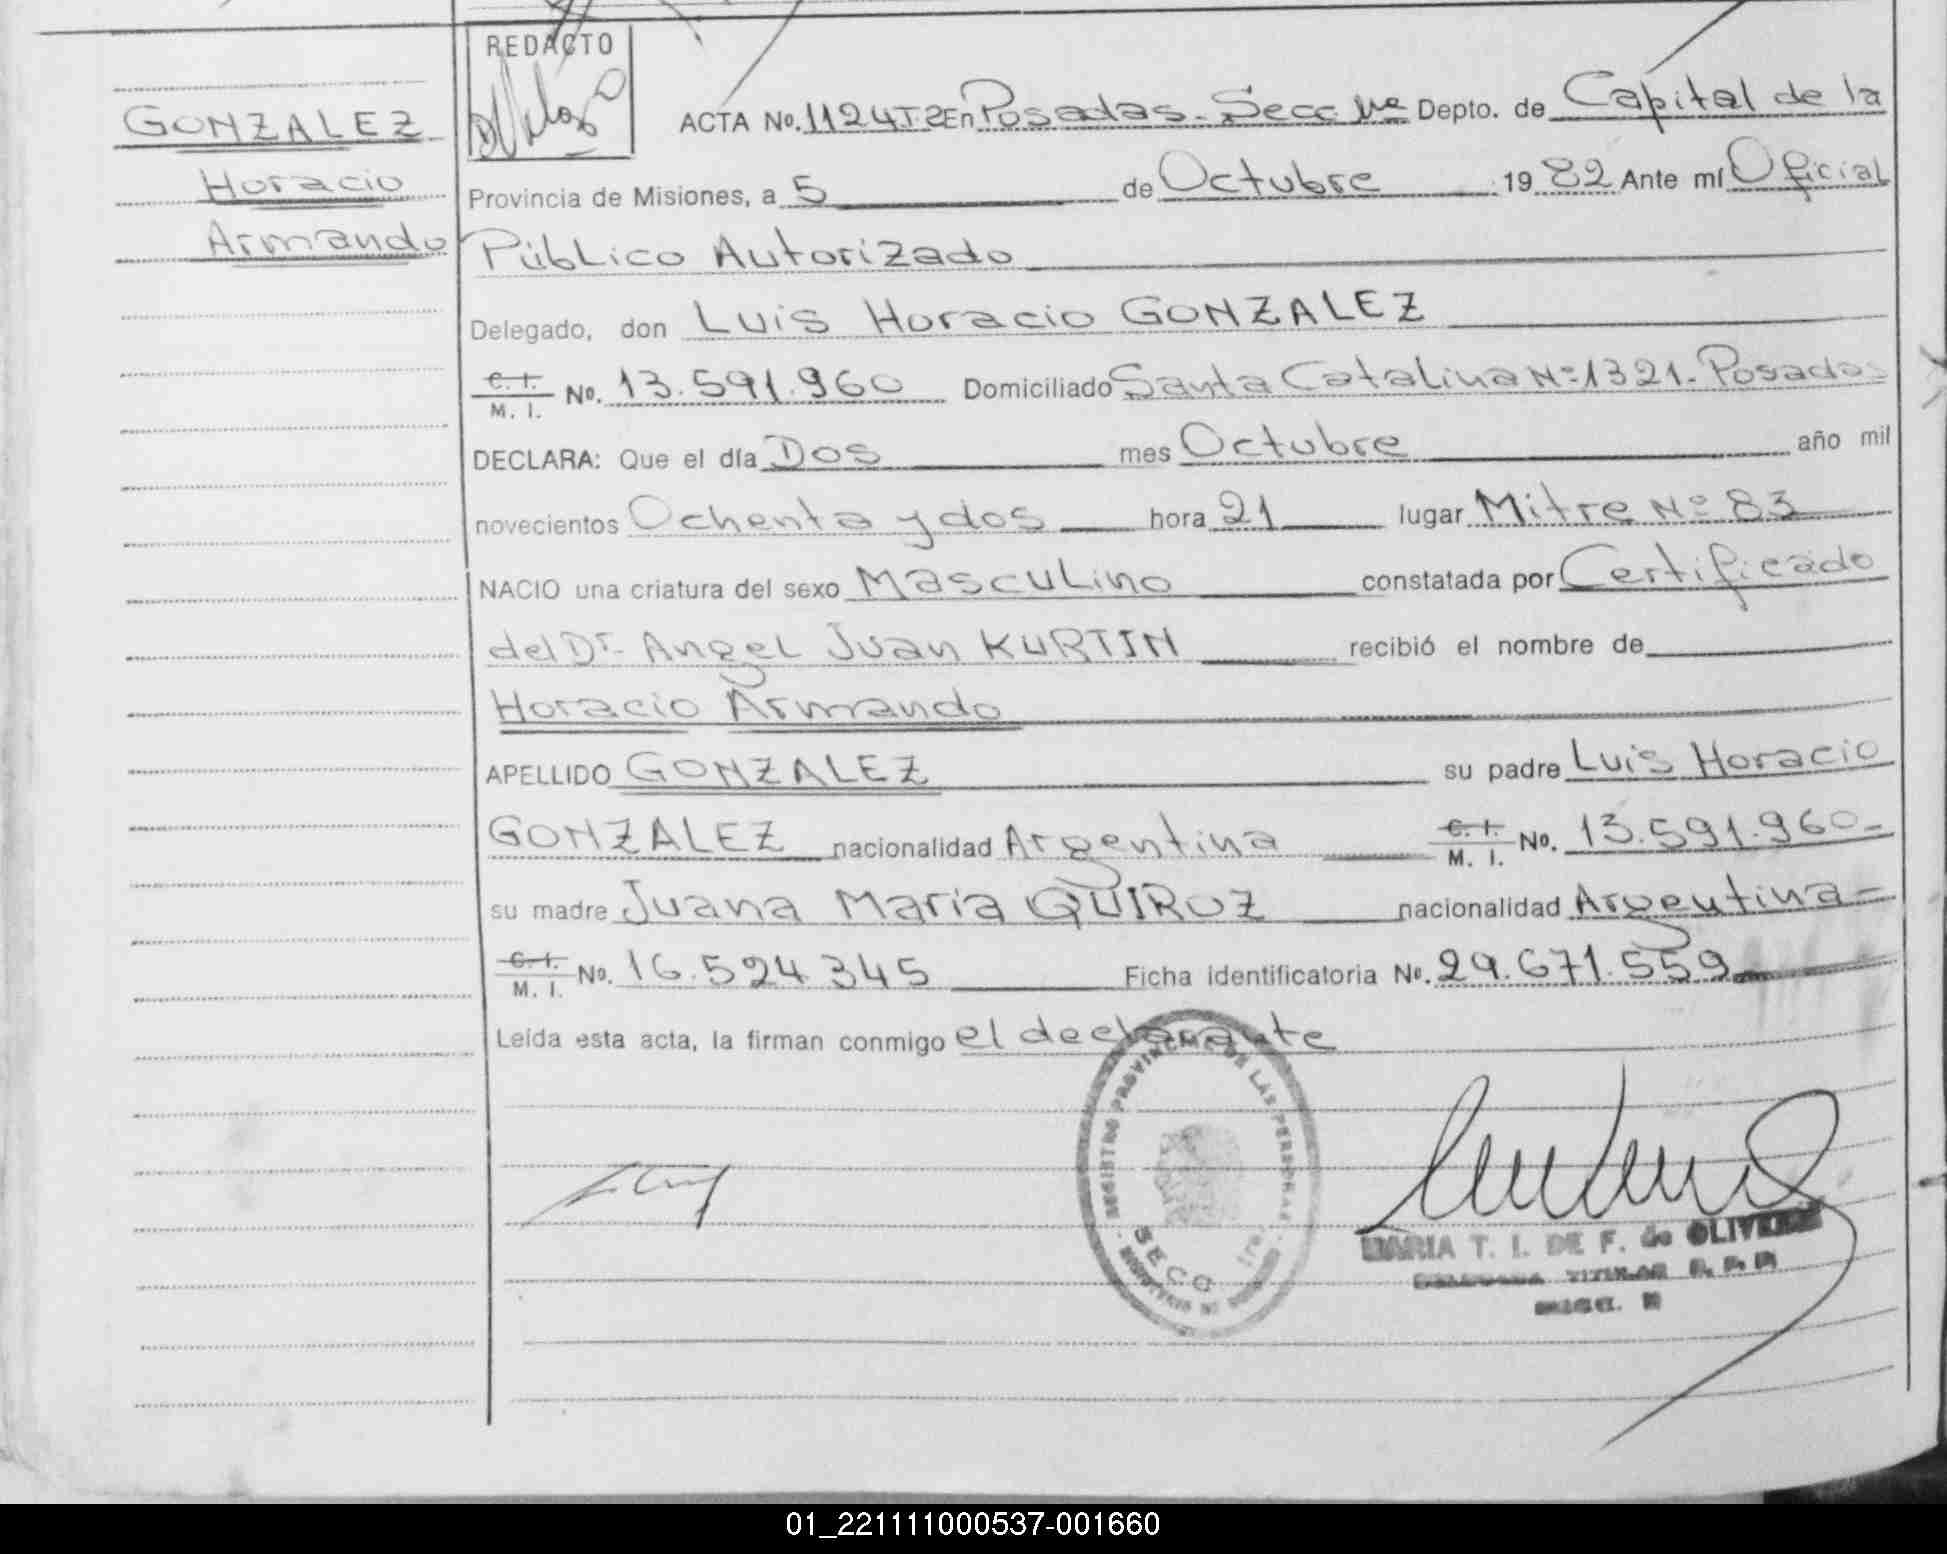 REDACTO
GONZALEZ
Horacio
Armando
ACTA No. 1124 T-2 En Posadas - Secc. Depto. de Capital de la
Provincia de Misiones, a 5 de Octubre 19 82 Ante mí Oficial
Público Autorizado
Delegado, don Luis Horacio GONZALEZ
C. I.
M. I. No. 13.591.960 Domiciliado Santa Catalina Nº 1321 - Posadas
DECLARA: Que el día Dos mes Octubre año mil
novecientos Ochenta y dos hora 21 lugar Mitre Nº 83
NACIO una criatura del sexo Masculino constatada por Certificado
del Dr. Angel Juan KURTIN recibió el nombre de
Horacio Armando
APELLIDO GONZALEZ su padre Luis Horacio
GONZALEZ nacionalidad Argentina C. I.
M. I. No. 13.591.960-
su madre Juana María QUIROZ nacionalidad Argentina-
C. I.
M. I. No. 16.524.345 Ficha identificatoria No. 29.671.559
Leída esta acta, la firman conmigo el declarante
REGISTRO PROVINCIAL DE LAS PERSONAS
SECC 1ra.
MARIA T. I. DE F. de OLIVERA
TITULAR
01_221111000537-001660